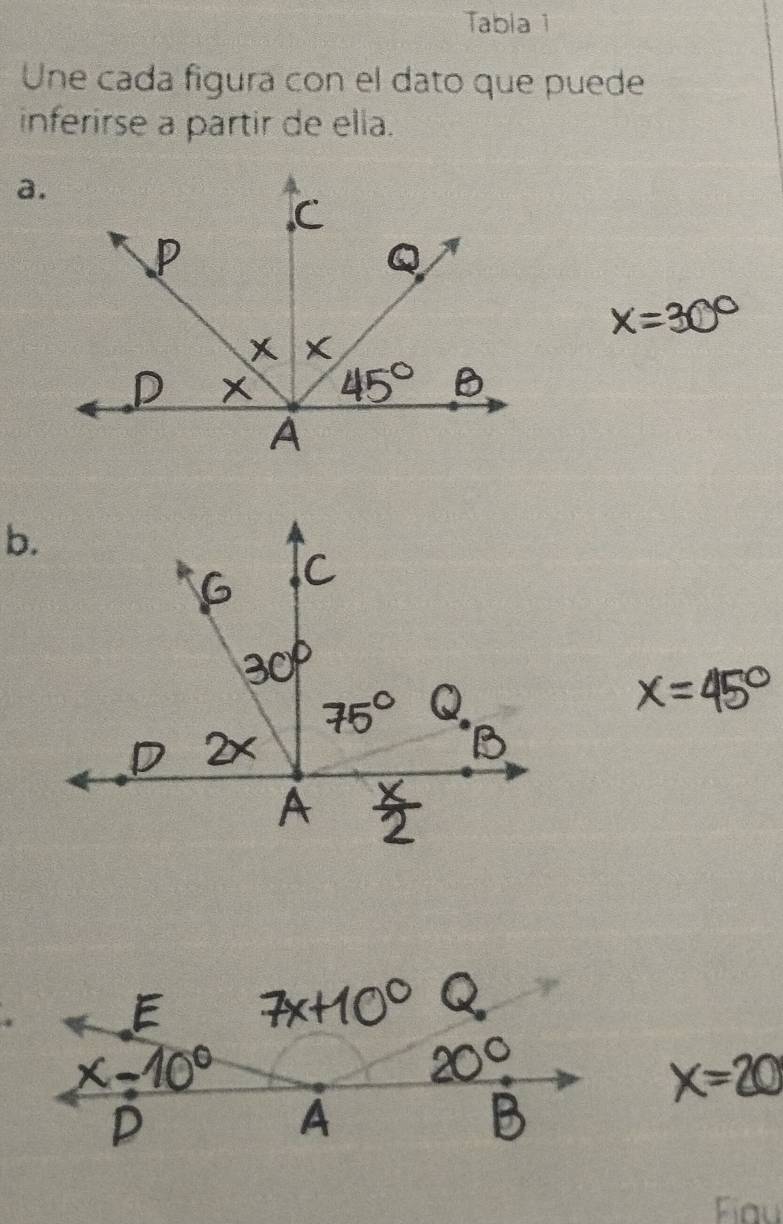 Tabla 1
Une cada figura con el dato que puede
inferirse a partir de ella.
a.
C
P
Q
x = 30°
x x
D x 45° B
A
b.
C
G
30°
x = 45°
75° Q
B
D 2x
A x/2
E 7x+10° Q
x-10° 20°
x = 20
D A B